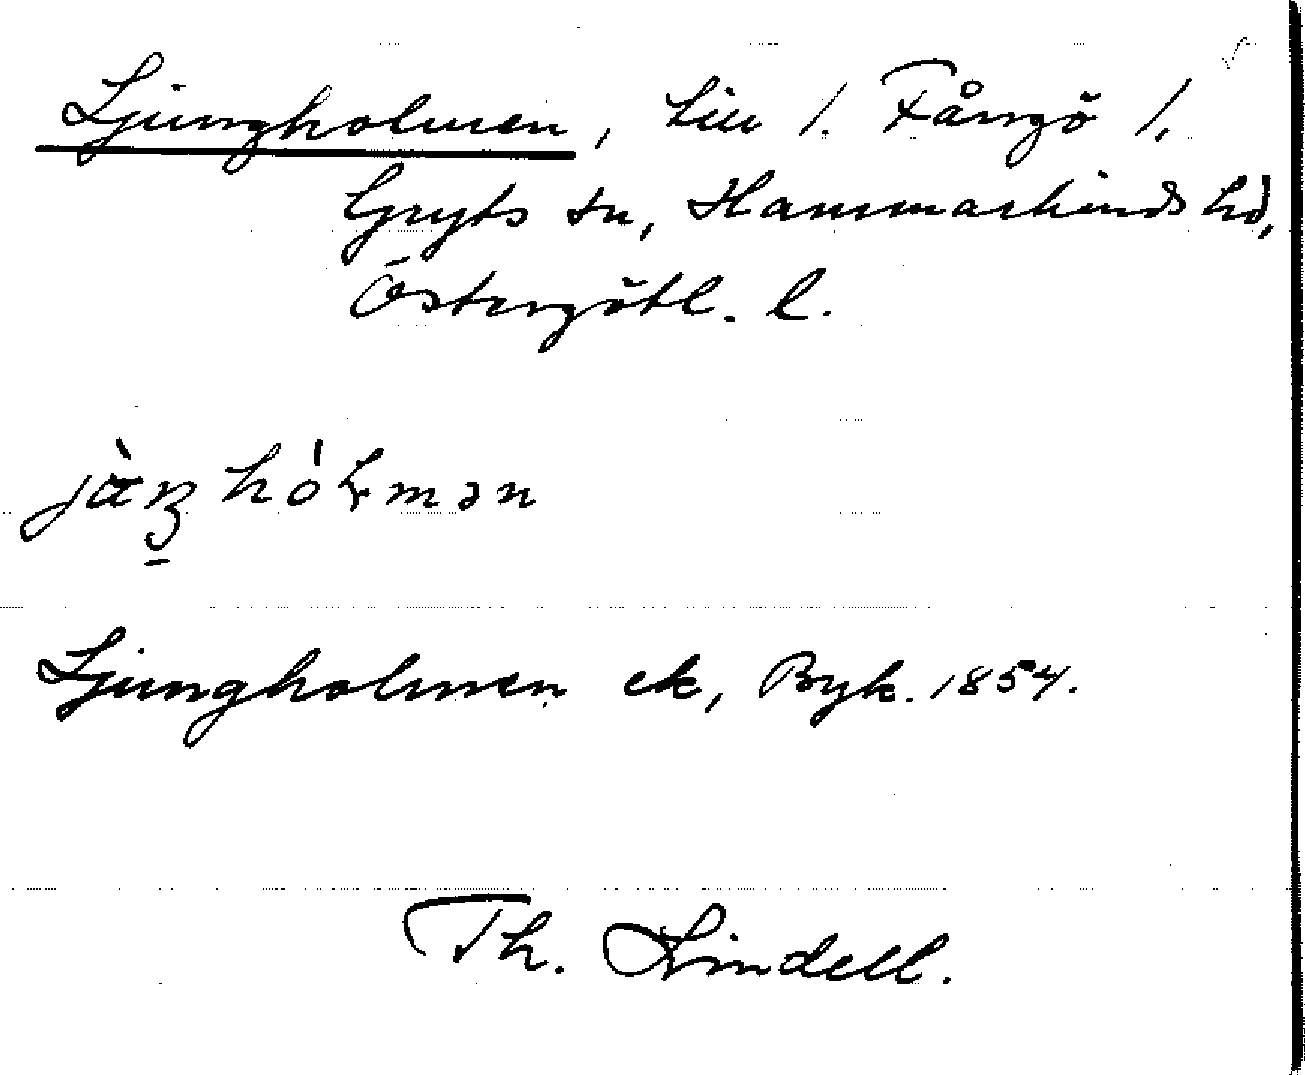 Ljungholmen, hem /. Fångö /.
Gryts sn, Hammarkinds hd,
Östergötl. l.
Ljungholmen ek, Byk. 1854.
Th. Lindell.